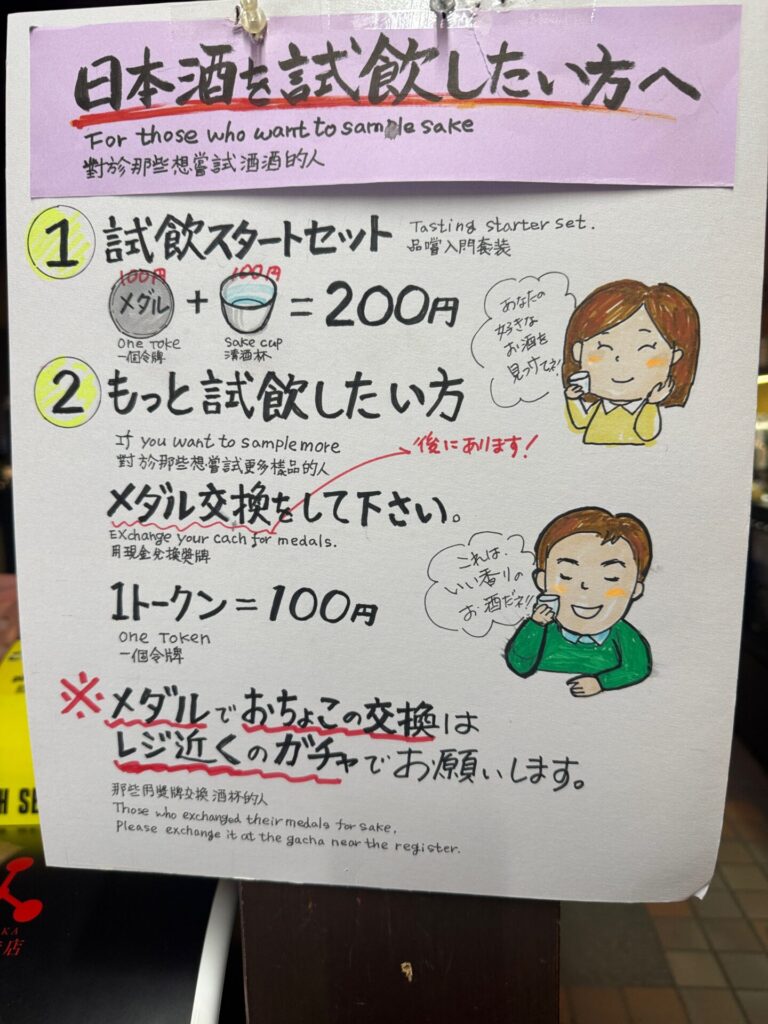 日本酒を試飲したい方へ
For those who want to sample sake
對於那些想嘗試酒酒的人
1 試飲スタートセット
Tasting starter set.
品嚐入門套装
100円 100円
メダル + = 200円
One Toke
一個令牌
Sake cup
清酒杯
あなたの
好きな
お酒を
見つけてネ!
2 もっと試飲したい方
If you want to sample more
對於那些想嘗試更多樣品的人
後にあります!
メダル交換をして下さい。
Exchange your cach for medals.
用現金兌換獎牌
これは、
いい香りの
お酒だネ!!
1トークン=100円
One Token
一個令牌
※メダルでおちょこの交換は
レジ近くのガチャでお願いします。
那些用獎牌交換酒杯的人
Those who exchanged their medals for sake,
Please exchange it at the gacha near the register.
H SE
KA
店